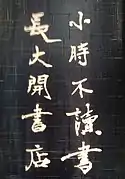 小時不讀書
長大開書店